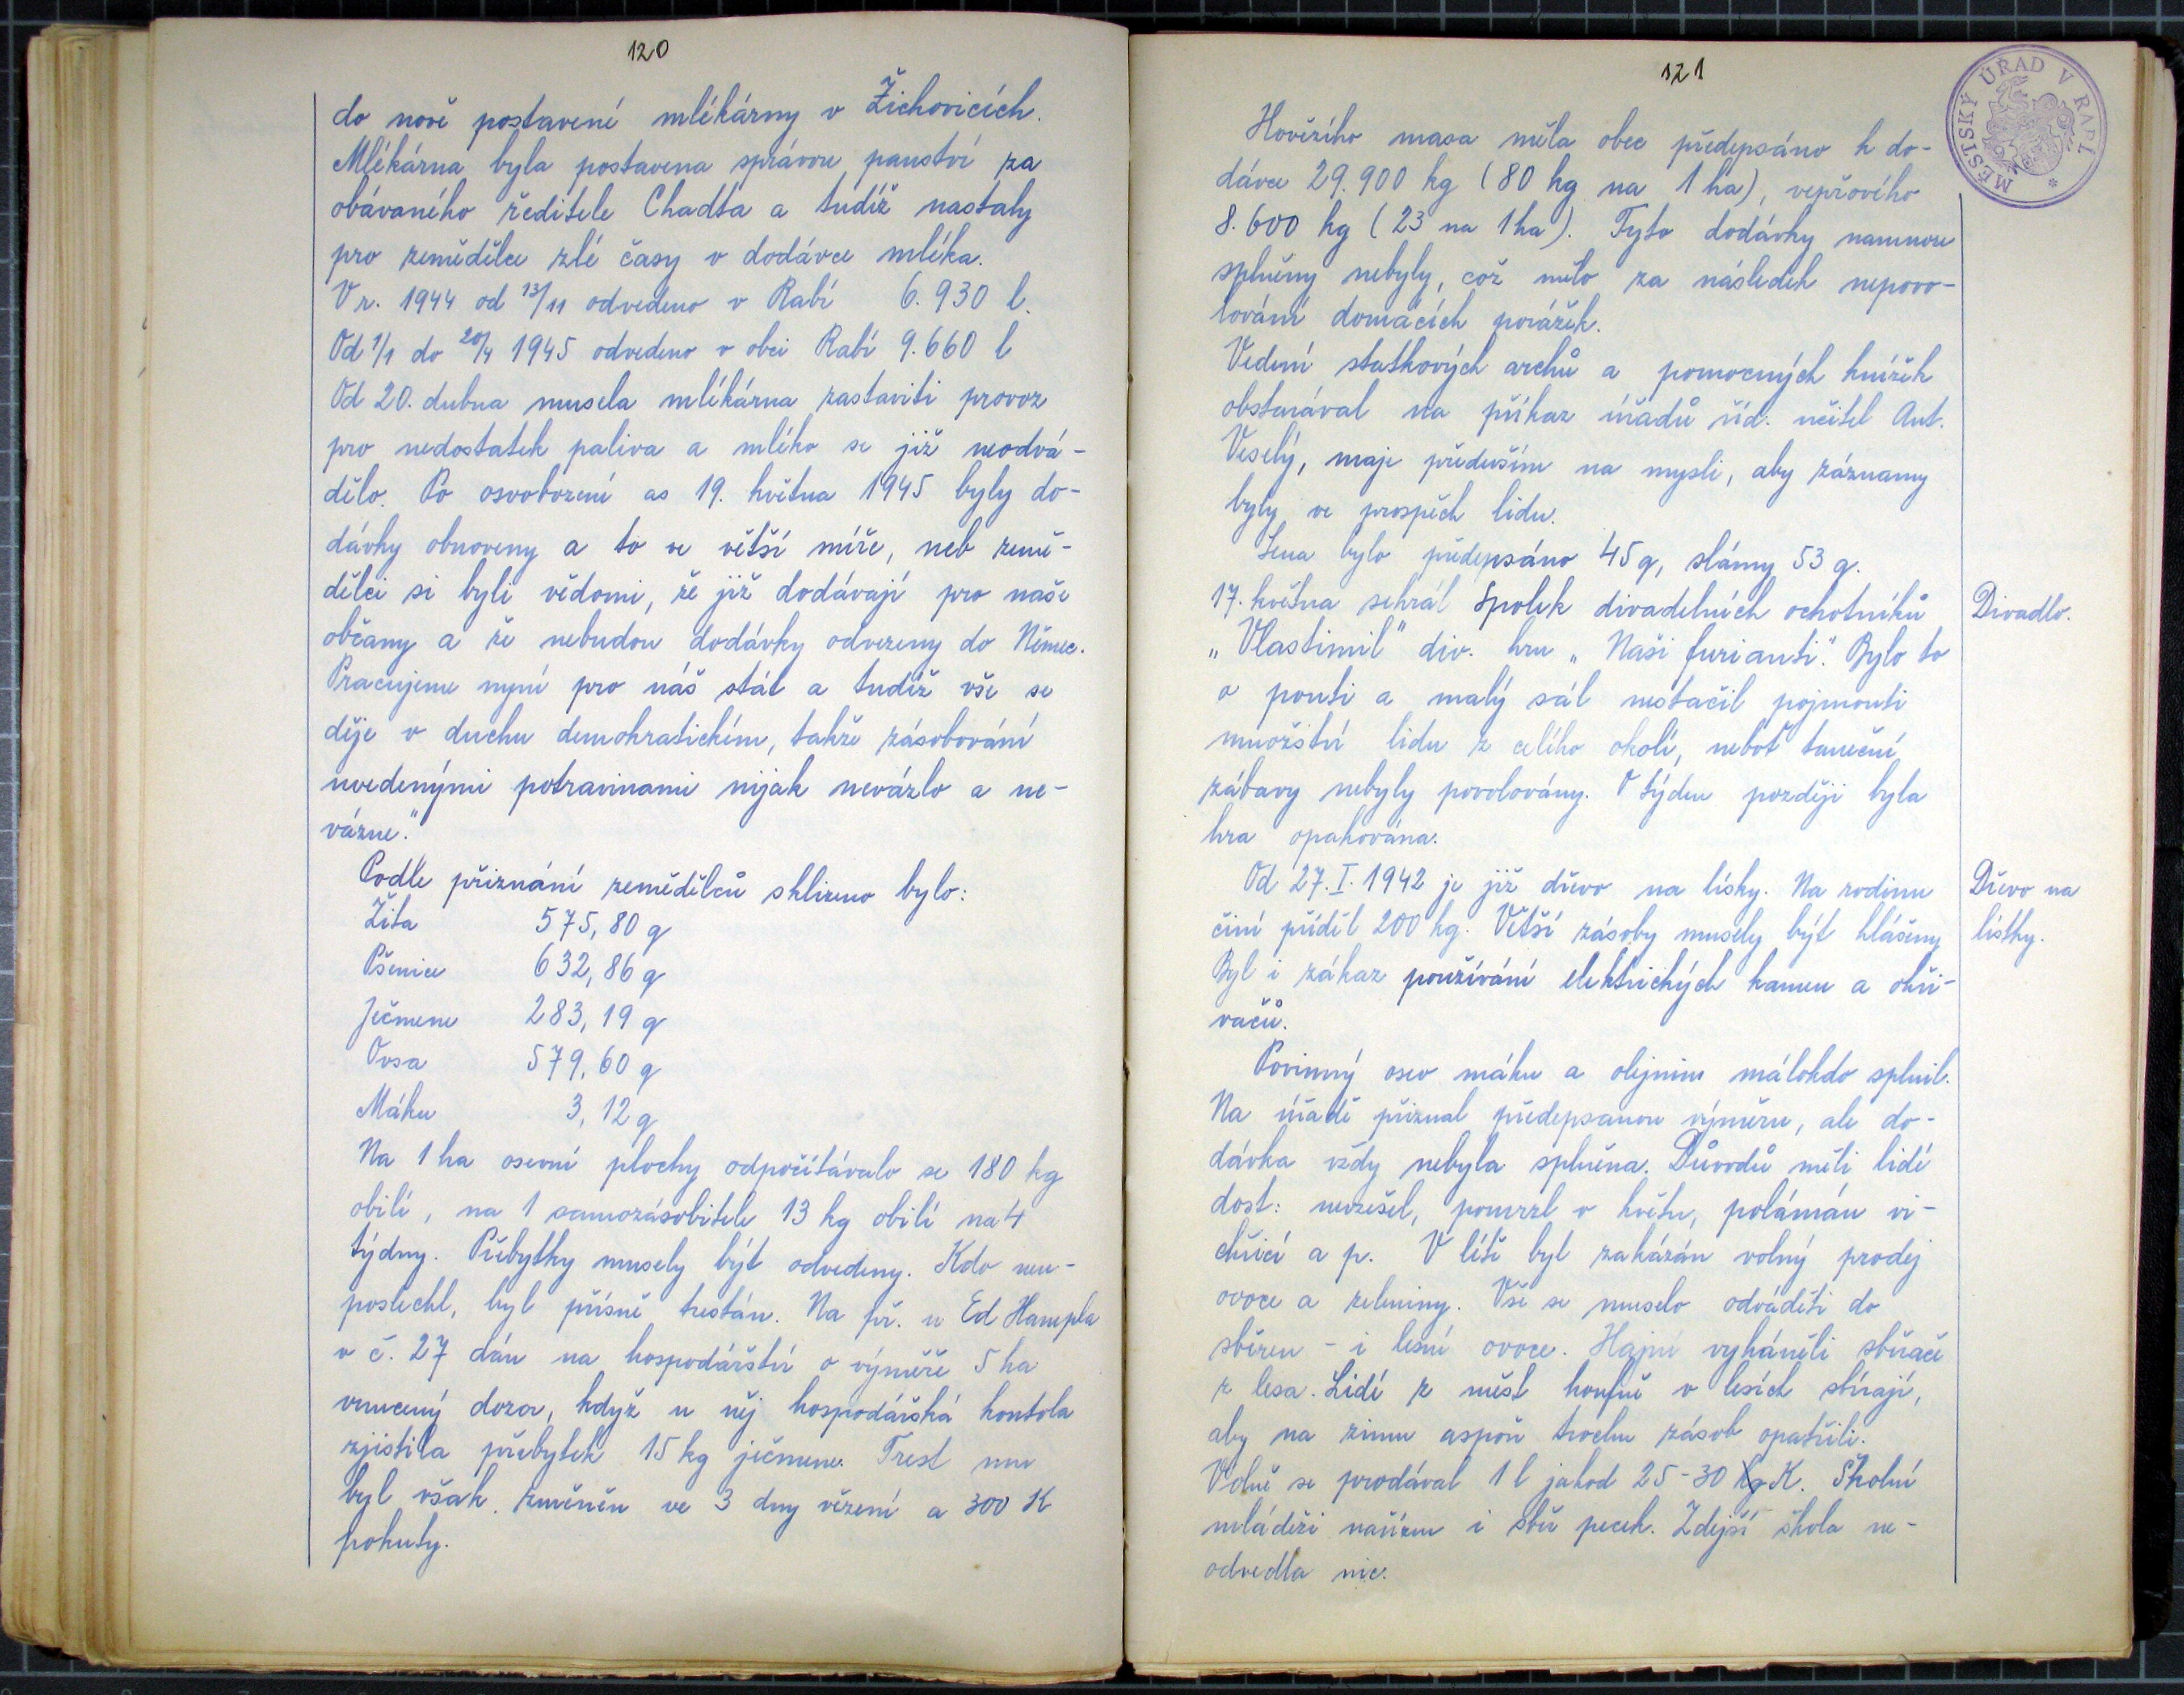 120
do nově postavené mlékárny v Žichovicích.
Mlékárna byla postavena správou panství za
obávaného ředitele Chadta a tudíž nastaly
pro zemědělce zlé časy v dodávce mléka.
V r. 1944 od 13/11 odvedeno v Rabí 6.930 l.
Od 1/1 do 20/4 1945 odvedeno v obci Rabí 9.660 l
Od 20. dubna musela mlékárna zastaviti provoz
pro nedostatek paliva a mléko se již neodvá-
dělo. Po osvobození as 19. května 1945 byly do-
dávky obnoveny a to ve větší míře, neb země-
dělci si byli vědomi, že již dodávají pro naše
občany a že nebudou dodávky odvezeny do Němec.
Pracujeme nyní pro náš stát a tudíž vše se
děje v duchu demokratickém, takže zásobování
uvedenými potravinami nijak nevázlo a ne-
vázne."
Podle přiznání zemědělců sklizeno bylo:
Žita 575,80 q
Pšenice 632,86 q
Ječmene 283,19 q
Ovsa 579,60 q
Máku 3,12 q
Na 1 ha osevní plochy odpočítávalo se 180 kg
obilí, na 1 samozásobitele 13 kg obilí na 4
týdny. Přebytky musely být odvedeny. Kdo neu-
poslechl, byl přísně trestán. Na př. u Ed Hampla
v č. 27 dán na hospodářství o výměře 5 ha
vnucený dozor, když u něj hospodářská kontola
zjistila přebytek 15 kg ječmene. Trest mu
byl však změněn ve 3 dny vězení a 300 K
pokuty.
121
MĚSTSKÝ ÚŘAD V RABÍ
Hovězího masa měla obec předepsáno k do-
dávce 29.900 kg (80 kg na 1 ha), vepřového
8.600 kg (23 na 1 ha). Tyto dodávky namnoze
splněny nebyly, což mělo za následek nepovo-
lování domácích porážek.
Vedení statkových archů a pomocných knížek
obstarával na příkaz úřadů říd. učitel Ant.
Veselý, maje především na mysli, aby záznamy
byly ve prospěch lidu.
Sena bylo předepsáno 45 q, slámy 53 q.
17. května sehrál spolek divadelních ochotníků
Divadlo.
„Vlastimil" div. hru „Naši furianti". Bylo to
o pouti a malý sál nestačil pojmouti
množství lidu z celého okolí, neboť taneční
zábavy nebyly povolovány. O týden později byla
hra opakována.
Od 27. I. 1942 je již dřevo na lísky. Na rodinu
Dřevo na
činí příděl 200 kg. Větší zásoby musely být hlášeny
lístky.
Byl i zákaz používání elektrických kamen a ohří-
vačů.
Povinný osev máku a olejnin málokdo splnil.
Na úřadě přiznal předepsanou výměru, ale do-
dávka vždy nebyla splněna. Důvodů měli lidé
dost: nevzešel, pomrzl v květu, polámán vi-
chřicí a p. V létě byl zakázán volný prodej
ovoce a zeleniny. Vše se muselo odváděti do
sběren - i lesní ovoce. Hajní vyháněli sběrače
z lesa. Lidé z měst houfně v lesích sbírají,
aby na zimu aspoň trochu zásob opatřili.
Volně se prodával 1 l jahod 25-30 K. Školní
mládeži nařízen i sběr pecek. Zdejší škola ne-
odvedla nic.